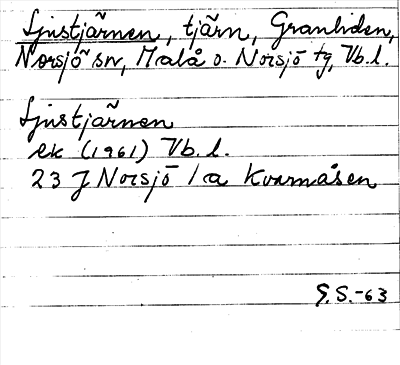 Ljustjärnen, tjärn, Granliden,
Norsjö sn, Malå o. Norsjö tg, Vb. l.
Ljustjärnen
ek (1961) Vb. l.
23 J Norsjö 1 a Kvarnåsen
G.S.-63